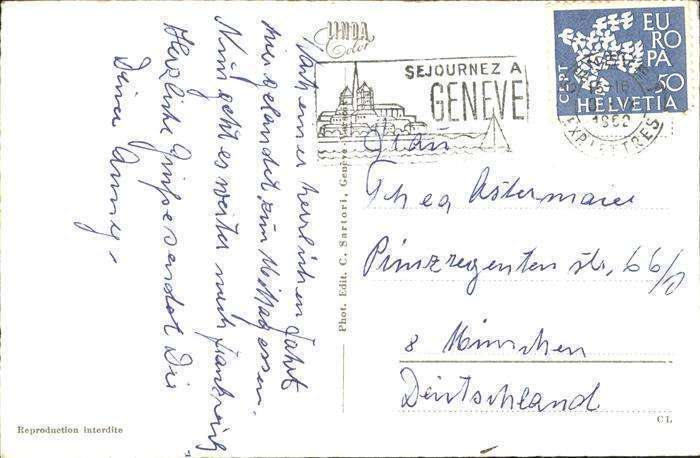 LINDA
Color
Nach einer herrlichen Fahrt
hier gelandet, zum Mittagessen.
Nun geht es weiter nach Frankreich
Herzliche Grüsse sendet Dir
Deine
SEJOURNEZ A
GENEVE
EUROPA
CEPT
50
HELVETIA
EXP. LETTRES
Frau
Thea Astermaier
Prinzregenten str. 66/0
8 München
Deutschland
Phot. Edit. C. Sartori, Genève
Reproduction interdite
CL